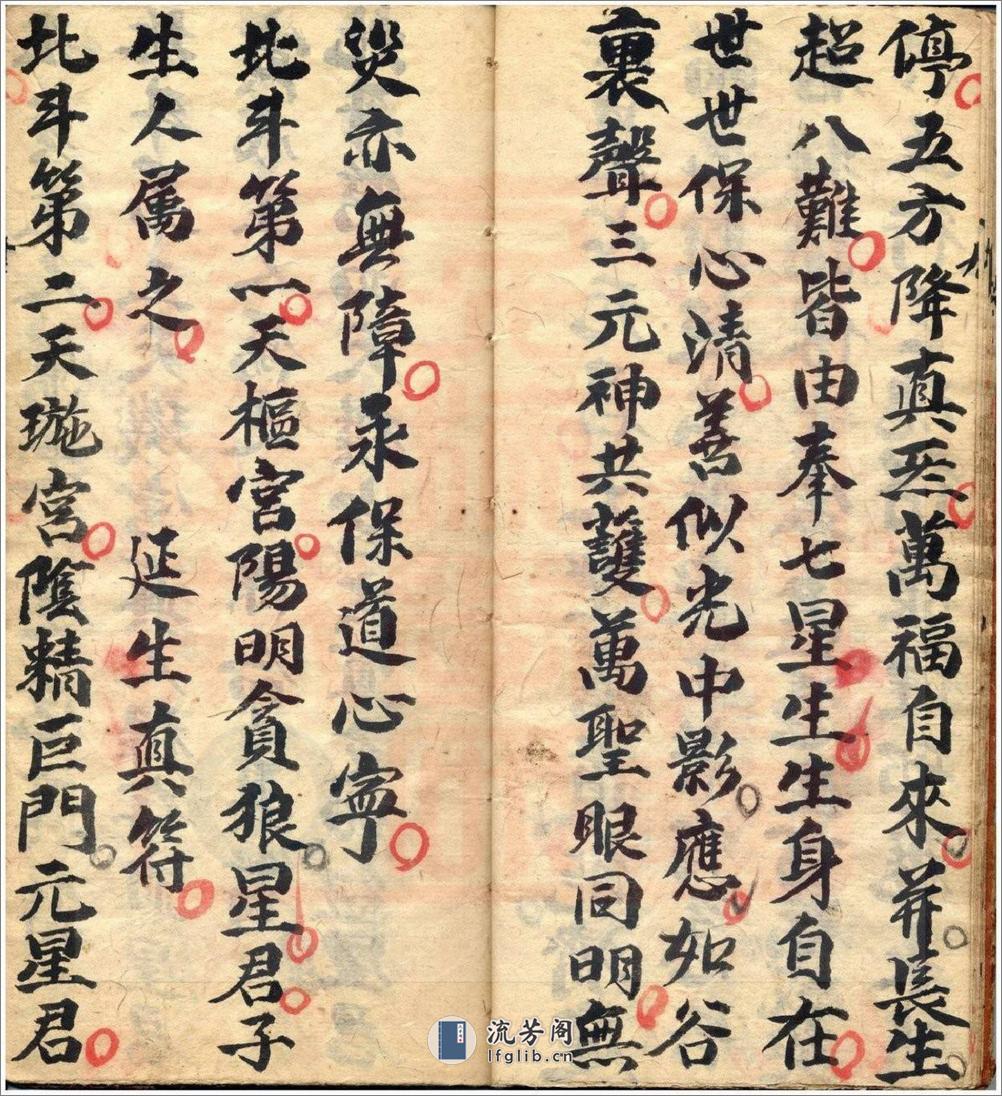 停五方降真炁萬福自來并長生
超八難皆由奉七星生生身自在
世世保心清善似光中影應如谷
裏聲三元神共護萬聖眼同明無
災亦無障永保道心寧
北斗第一天樞宮陽明貪狼星君子
生人属之 延生真符
北斗第二天璇宮陰精巨門元星君
流芳阁
lfglib.cn